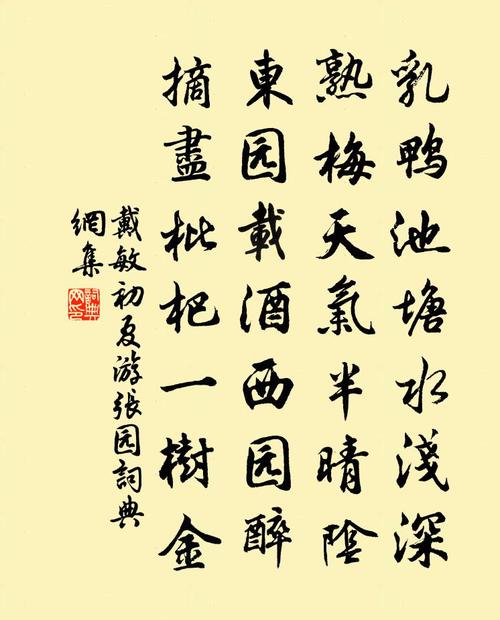 乳鸭池塘水淺深
熟梅天氣半晴陰
東园載酒西园醉
摘盡枇杷一樹金
戴敏初夏游张园詞典
網集
詞典网印